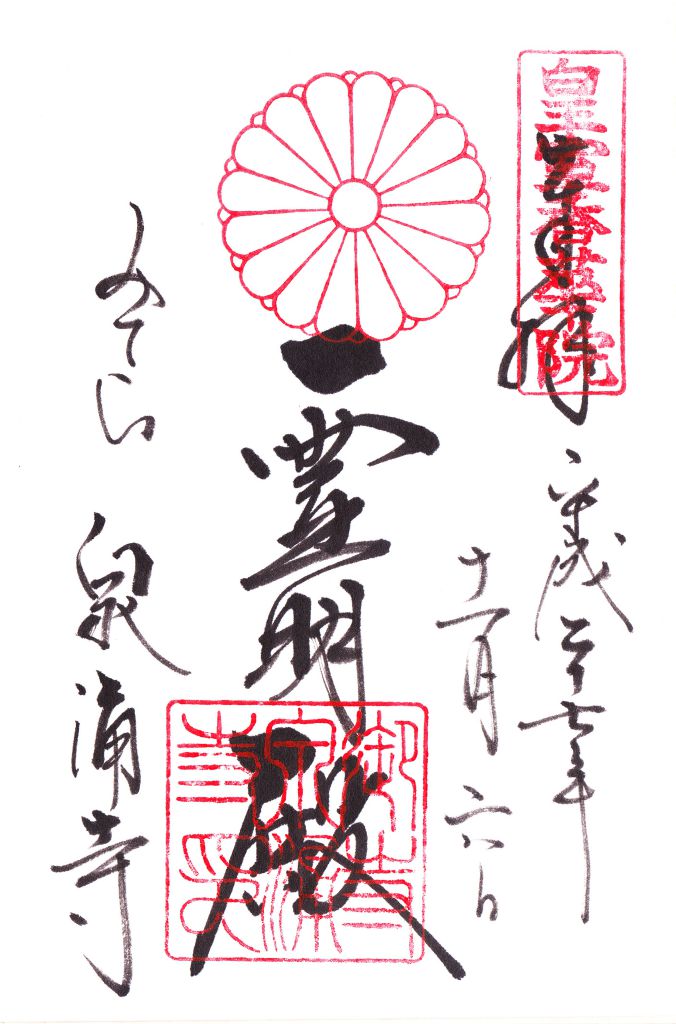 皇室香華院
奉拝
平成二十七年
十一月六日
霊明殿
御寺泉涌寺印
みてら 泉涌寺